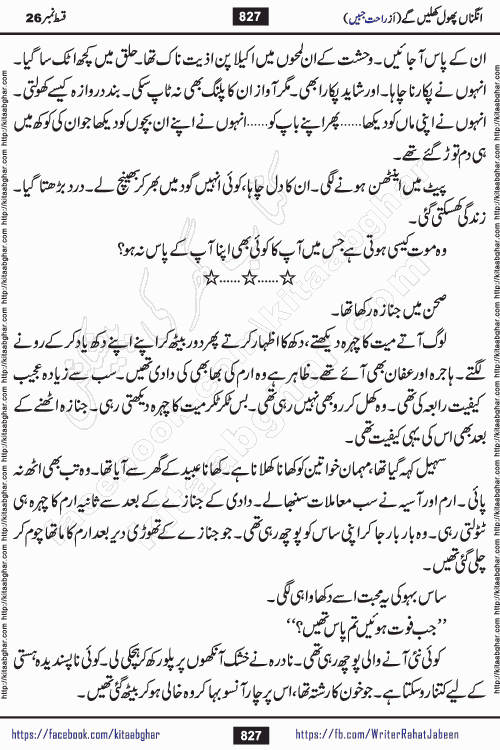 انگناں پھول کھلیں گے (از راحت جبیں)
827
قسط نمبر 26
ان کے پاس آ جائیں۔ وحشت کے ان لمحوں میں اکیلا پن اذیت ناک تھا۔ حلق میں کچھ اٹک سا گیا۔
انہوں نے پکارنا چاہا۔ اور شاید پکارا بھی۔ مگر آواز ان کا پلنگ بھی نہ ٹاپ سکی۔ بند دروازہ کیسے کھولتی۔
انہوں نے اپنی ماں کو دیکھا……پھر اپنے باپ کو……انہوں نے اپنے ان بچوں کو دیکھا جو ان کی کوکھ میں
ہی دم توڑ گئے تھے۔
پیٹ میں اینٹھن ہونے لگی۔ ان کا دل چاہا، کوئی انہیں گود میں بھر کر بھینچ لے۔ درد بڑھتا گیا۔
زندگی کھسکتی گئی۔
وہ موت کیسی ہوتی ہے جس میں آپ کا کوئی بھی اپنا آپ کے پاس نہ ہو؟
☆……☆……☆
صحن میں جنازہ رکھا تھا۔
لوگ آتے میت کا چہرہ دیکھتے، دکھ کا اظہار کرتے پھر دور بیٹھ کر اپنے اپنے دکھ یاد کر کے رونے
لگتے۔ ہاجرہ اور عفان بھی آئے تھے۔ ظاہر ہے وہ ارم کی بھابھی کی دادی تھیں۔ سب سے زیادہ عجیب
کیفیت رابعہ کی تھی۔ وہ کھل کر رو بھی نہیں رہی تھی۔ بس ٹکر ٹکر میت کا چہرہ دیکھتی رہی۔ جنازہ اٹھنے کے
بعد بھی اس کی یہی کیفیت تھی۔
سہیل کہہ گیا تھا، مہمان خواتین کو کھانا کھلانا ہے۔ کھانا عبید کے گھر سے آیا تھا۔ وہ تب بھی اٹھ نہ
پائی۔ ارم اور آسیہ نے سب معاملات سنبھالے۔ دادی کے جنازے کے بعد سے ثانیہ ارم کا چہرہ ہی
ٹٹولتی رہی۔ وہ بار بار جا کر اپنی ساس کو پوچھ رہی تھی۔ جو جنازے کے تھوڑی دیر بعد ارم کا ماتھا چوم کر
چلی گئی تھیں۔
ساس بہو کی یہ محبت اسے دکھاوا ہی لگی۔
”جب فوت ہوئیں تم پاس تھیں؟“
کوئی نئی آنے والی پوچھ رہی تھی۔ نادرہ نے خشک آنکھوں پر پلو رکھ کر ہچکی لی۔ کوئی ناپسندیدہ ہستی
کے لیے کتنا رو سکتا ہے۔ جو خون کا رشتہ تھا، اس پر چار آنسو بہا کر وہ خالی ہو کر بیٹھ گئی تھیں۔
https://facebook.com/kitaabghar
827
https://fb.com/WriterRahatJabeen
http://kitaabghar.com http://kitaabghar.com http://kitaabghar.com http://kitaabghar.com http://kitaabghar.com